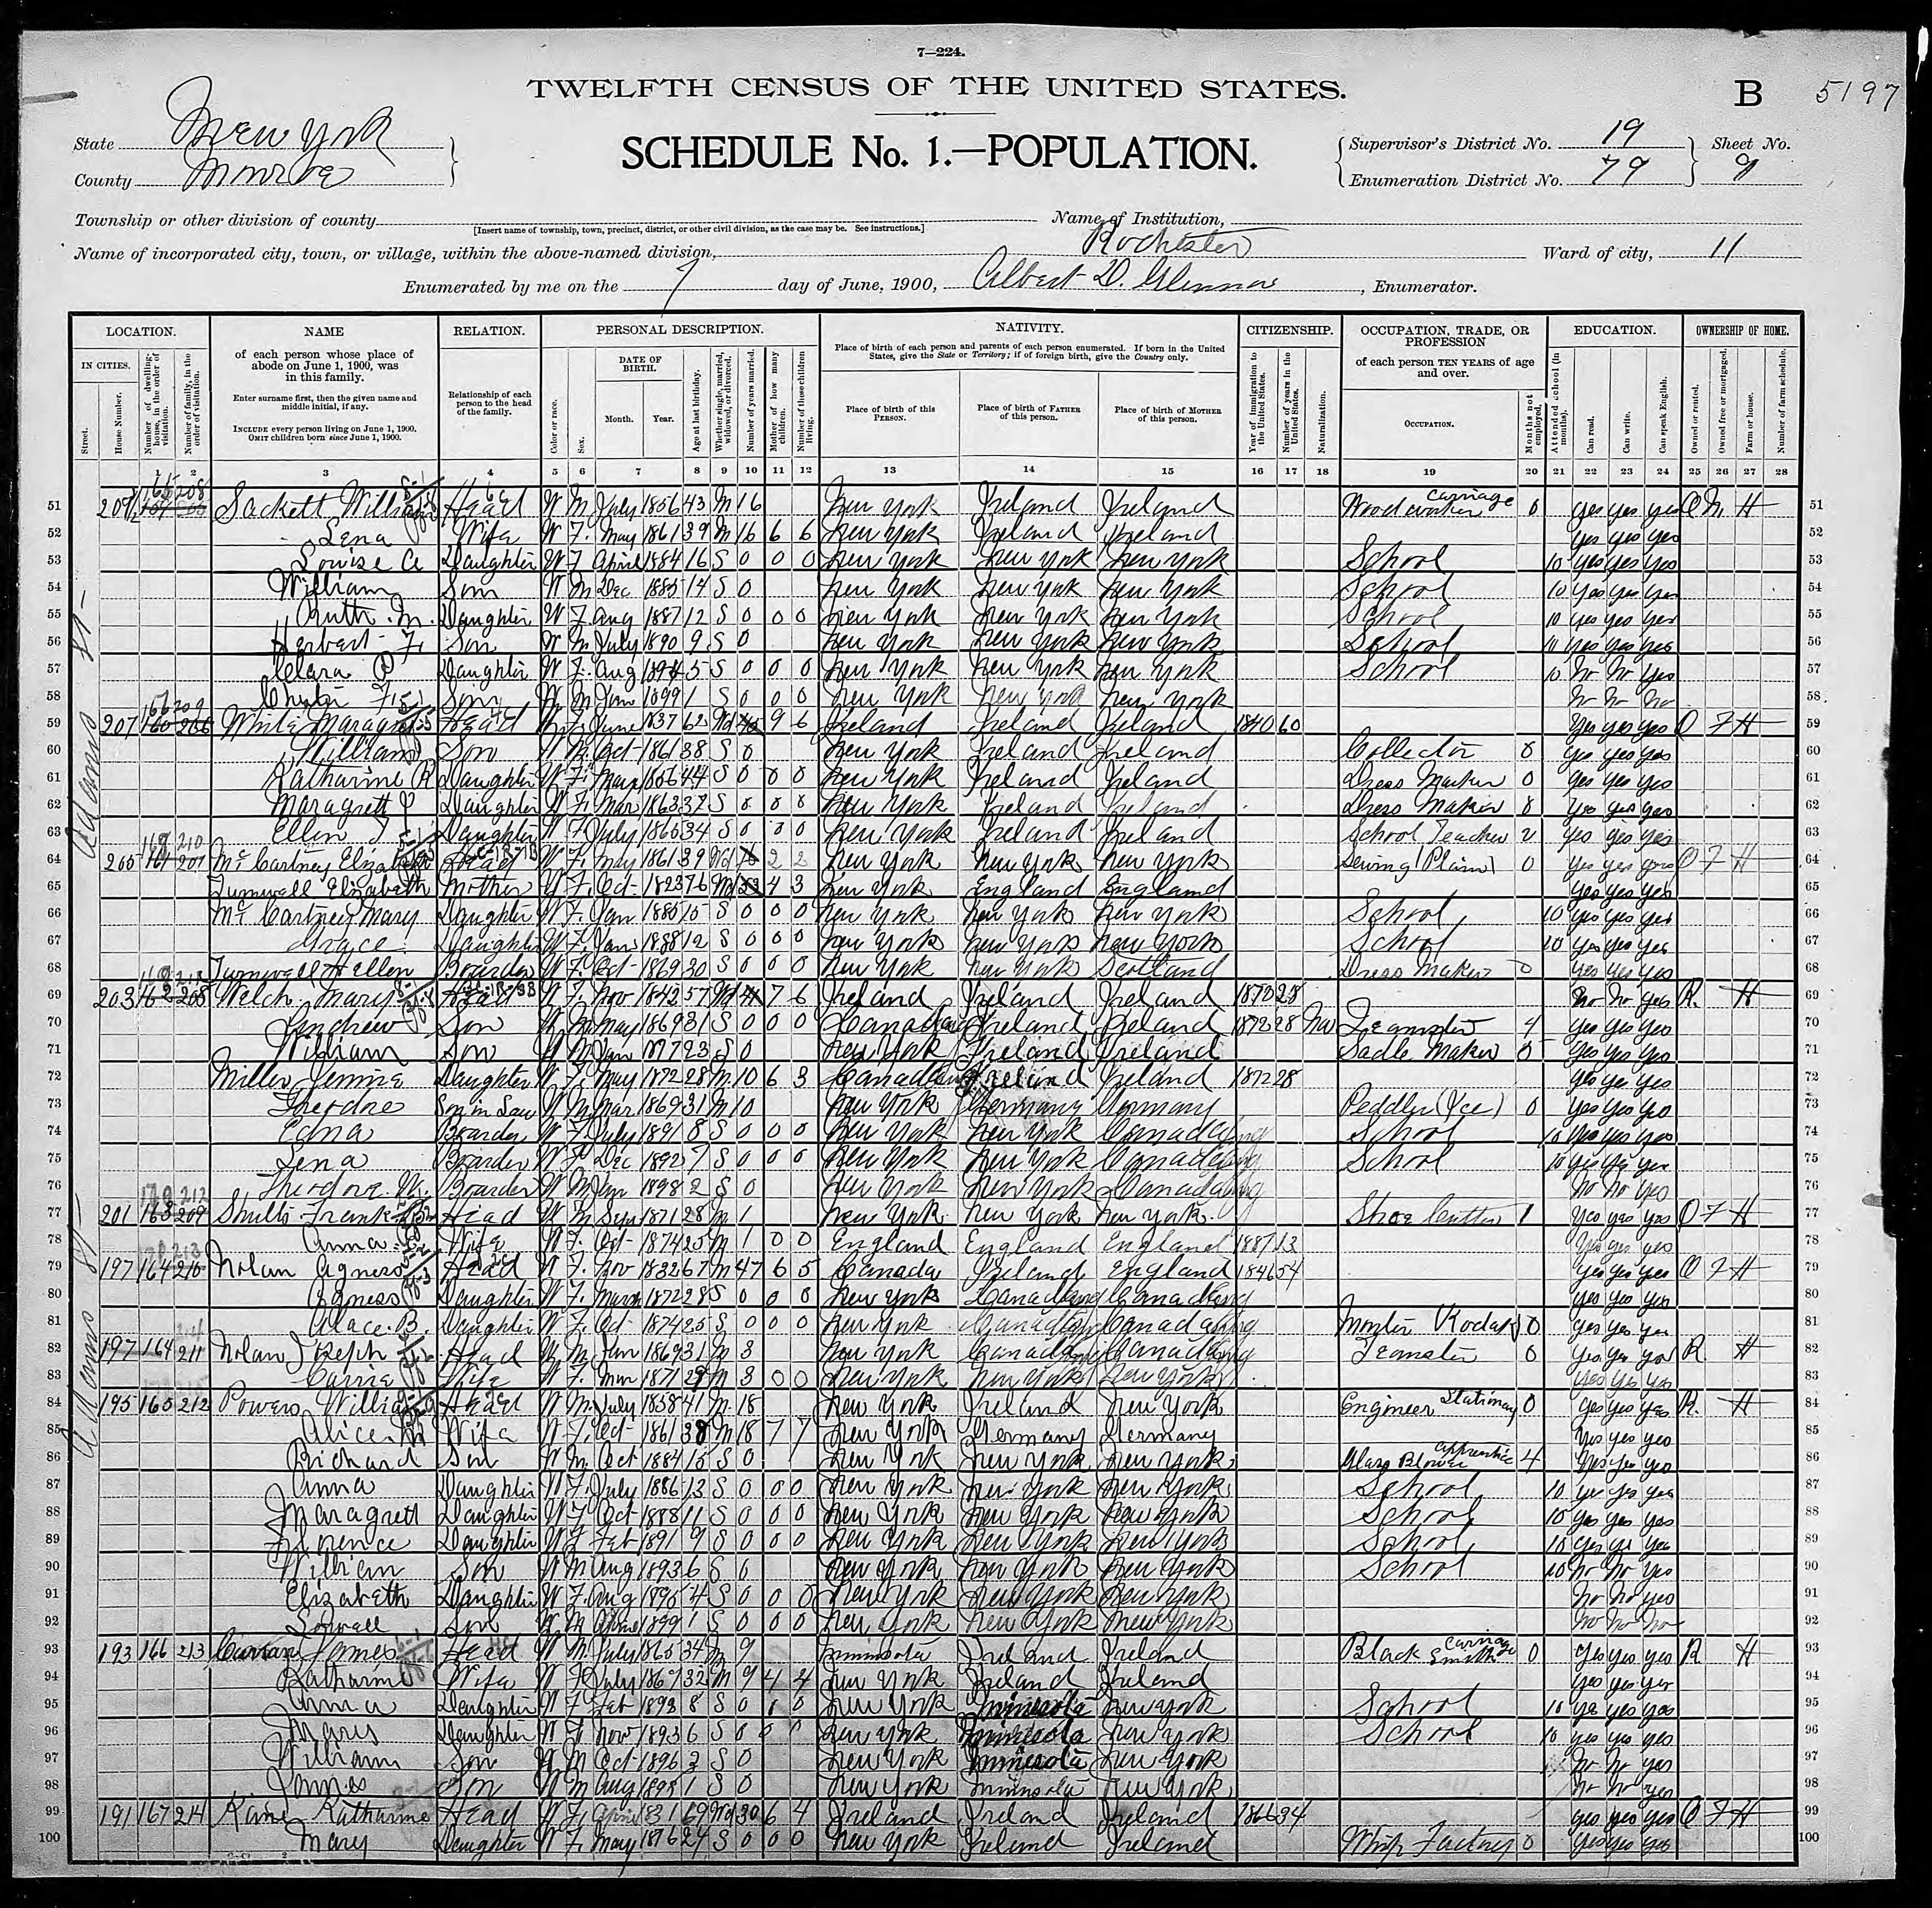 7—224.
TWELFTH CENSUS OF THE UNITED STATES.
B 5197
State New York
SCHEDULE No. 1.—POPULATION.
Supervisor's District No. 19 Sheet No.
County Monroe
Enumeration District No. 79 9
Township or other division of county Name of Institution,
[Insert name of township, town, precinct, district, or other civil division, as the case may be. See instructions.]
Name of incorporated city, town, or village, within the above-named division, Rochester Ward of city, 11
Enumerated by me on the 7 day of June, 1900, Albert D. , Enumerator.
LOCATION. NAME RELATION. PERSONAL DESCRIPTION. NATIVITY. CITIZENSHIP. OCCUPATION, TRADE, OR PROFESSION EDUCATION. OWNERSHIP OF HOME.
IN CITIES. Street. House Number. Number of dwelling-house, in the order of visitation. Number of family, in the order of visitation.
of each person whose place of abode on June 1, 1900, was in this family.
Enter surname first, then the given name and middle initial, if any.
INCLUDE every person living on June 1, 1900. OMIT children born since June 1, 1900.
Relationship of each person to the head of the family.
Color or race. Sex. DATE OF BIRTH. Month. Year. Age at last birthday. Whether single, married, widowed, or divorced. Number of years married. Mother of how many children. Number of these children living.
Place of birth of each person and parents of each person enumerated. If born in the United States, give the State or Territory; if of foreign birth, give the Country only.
Place of birth of this PERSON. Place of birth of FATHER of this person. Place of birth of MOTHER of this person.
Year of immigration to the United States. Number of years in the United States. Naturalization.
of each person TEN YEARS of age and over.
OCCUPATION. Months not employed.
Attended school (in months). Can read. Can write. Can speak English.
Owned or rented. Owned free or mortgaged. Farm or house. Number of farm schedule.
1 2 3 4 5 6 7 8 9 10 11 12 13 14 15 16 17 18 19 20 21 22 23 24 25 26 27 28
Adams St
51 Sackett William Head W M July 1856 43 M 16 New York Ireland Ireland Wood worker Carriage 0 yes yes yes O M H 51
52 Lena Wife W F May 1861 39 M 16 6 6 New York Ireland Ireland yes yes yes 52
53 Louise A Daughter W F April 1884 16 S 0 0 0 New York New York New York School 10 yes yes yes 53
54 William Son W M Dec 1885 14 S 0 New York New York New York School 10 yes yes yes 54
55 Ruth M. Daughter W F Aug 1887 12 S 0 0 0 New York New York New York School 10 yes yes yes 55
56 Herbert F. Son W M July 1890 9 S 0 New York New York New York School 10 yes yes yes 56
57 Clara Daughter W F Aug 1894 5 S 0 0 0 New York New York New York School 10 no no yes 57
58 Chester F Son W M Jan 1899 1 S 0 0 0 New York New York New York no no no 58
59 207 White Maragrett Head W F June 1837 62 Wd 9 6 Ireland Ireland Ireland 1840 60 yes yes yes O F H 59
60 William Son W M Oct 1861 38 S 0 New York Ireland Ireland Collector 0 yes yes yes 60
61 Katharine R Daughter W F 1856 44 S 0 0 0 New York Ireland Ireland Dress Maker 0 yes yes yes 61
62 Maragrett Daughter W F Mar 1863 37 S 0 0 0 New York Ireland Ireland Dress Maker yes yes yes 62
63 Ellen Daughter W F July 1865 34 S 0 0 0 New York Ireland Ireland School Teacher 2 yes yes yes 63
64 205 McCartney Elizabeth Head W F May 1861 39 Wd 2 2 New York New York New York Sewing (Plain) 0 yes yes yes O F H 64
65 Elizabeth Mother W F Oct 1823 76 Wd 4 3 New York England England yes yes yes 65
66 McCartney Mary Daughter W F Jan 1885 15 S 0 0 0 New York New York New York School 10 yes yes yes 66
67 Grace Daughter W F Jan 1888 12 S 0 0 0 New York New York New York School 10 yes yes yes 67
68 Hellen Boarder W F Oct 1869 30 S 0 0 0 New York New York Scotland Dress Maker 0 yes yes yes 68
69 203 Welch Mary Head W F Nov 1842 57 Wd 7 6 Ireland Ireland Ireland 28 no no yes R. H 69
70 Andrew Son W M May 1869 31 S 0 0 0 Canada Ireland Ireland 1872 28 Na Teamster 4 yes yes yes 70
71 William Son W M Jan 1877 23 S 0 New York Ireland Ireland Sadle Maker yes yes yes 71
72 Miller Jennie Daughter W F May 1872 28 M 10 6 3 Canada Ireland Ireland 1872 28 yes yes yes 72
73 Theodore Son in Law W M Mar 1869 31 M 10 New York Germany Germany Peddler (Ice) 0 yes yes yes 73
74 Edna Boarder W F July 1891 8 S 0 0 0 New York New York Canada Eng School 10 yes yes yes 74
75 Lena Boarder W F Dec 1892 7 S 0 0 0 New York New York Canada Eng School 10 yes yes yes 75
76 Theodore Boarder W M Jan 1898 2 S 0 New York New York Canada Eng no no yes 76
77 201 Shults Frank Head W M Sep 1871 28 M 1 New York New York New York Shoe Cutter 1 yes yes yes O F H 77
78 Anna Wife W F Oct 1874 25 M 1 0 0 England England England 1887 13 yes yes yes 78
79 197 164 210 Nolan Agness Head W F Nov 1832 67 M 47 6 5 Canada Ireland England 1846 54 yes yes yes O F H 79
80 Agness Daughter W F March 1872 28 S 0 0 0 New York Canada Eng Canada Eng yes yes yes 80
81 Alace B. Daughter W F Oct 1874 25 S 0 0 0 New York Canada Eng Canada Eng Kodak 0 yes yes yes 81
82 197 164 211 Nolan Joseph Head W M Jan 1869 31 M 3 New York Canada Eng Canada Eng Teamster 0 yes yes yes R H 82
83 Carrie Wife W F Mar 1871 29 M 3 0 0 New York New York New York yes yes yes 83
84 195 165 212 Powers William Head W M July 1858 41 M 18 New York Ireland New York Engineer Stationary 0 yes yes yes R. H 84
85 Alice Wife W F Oct 1861 38 M 18 7 7 New York Germany Germany yes yes yes 85
86 Richard Son W M Oct 1884 15 S 0 New York New York New York Glass Blower apprentice 4 yes yes yes 86
87 Anna Daughter W F July 1886 13 S 0 0 0 New York New York New York School 10 yes yes yes 87
88 Maragrett Daughter W F Oct 1888 11 S 0 0 0 New York New York New York School 10 yes yes yes 88
89 Florence Daughter W F Feb 1891 9 S 0 0 0 New York New York New York School 10 yes yes yes 89
90 William Son W M Aug 1893 6 S 0 New York New York New York School 10 no no yes 90
91 Elizabeth Daughter W F Aug 1895 4 S 0 0 0 New York New York New York no no yes 91
92 Lowell Son W M 1899 1 S 0 0 0 New York New York New York no no no 92
93 193 166 213 Curran James Head W M July 1865 34 M 9 Minnisota Ireland Ireland Black Smith Carriage 0 yes yes yes R H 93
94 Katharine Wife W F July 1867 32 M 9 4 4 New York Ireland Ireland yes yes yes 94
95 Anna Daughter W F Feb 1892 8 S 0 0 0 New York Minnesota New York School 10 yes yes yes 95
96 Mary Daughter W F Nov 1893 6 S 0 0 0 New York Minnesota New York School 10 yes yes yes 96
97 William Son W M Oct 1896 3 S 0 New York Minnesota New York no no yes 97
98 James Son W M Aug 1898 1 S 0 New York Minnisota New York no no yes 98
99 191 167 214 Kane Katharine Head W F April 1831 69 Wd 30 6 4 Ireland Ireland Ireland 1866 34 yes yes yes O F H 99
100 Mary Daughter W F May 1876 24 S 0 0 0 New York Ireland Ireland Whip Factory 0 yes yes yes 100
Adams St